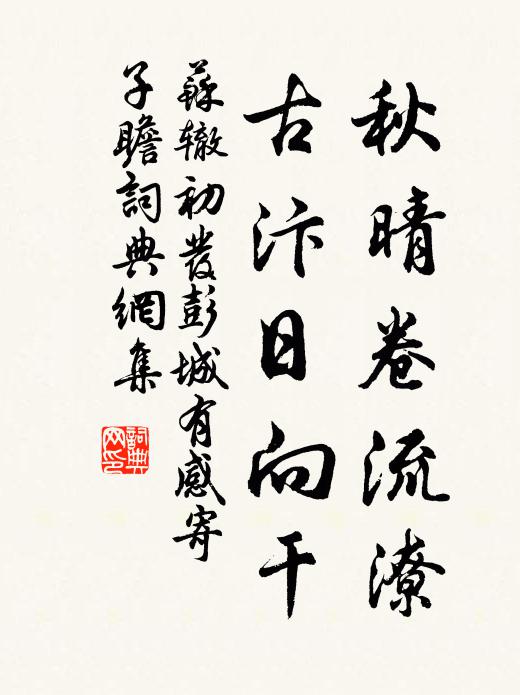 秋晴卷流潦
古汴日向干
蘇辙初發彭城有感寄
子瞻詞典網集
詞典网印